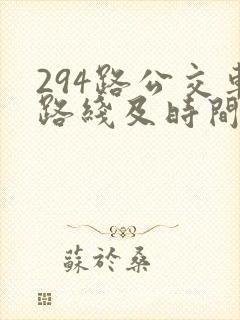 294路公交車
路綫及時間
蘇於桑